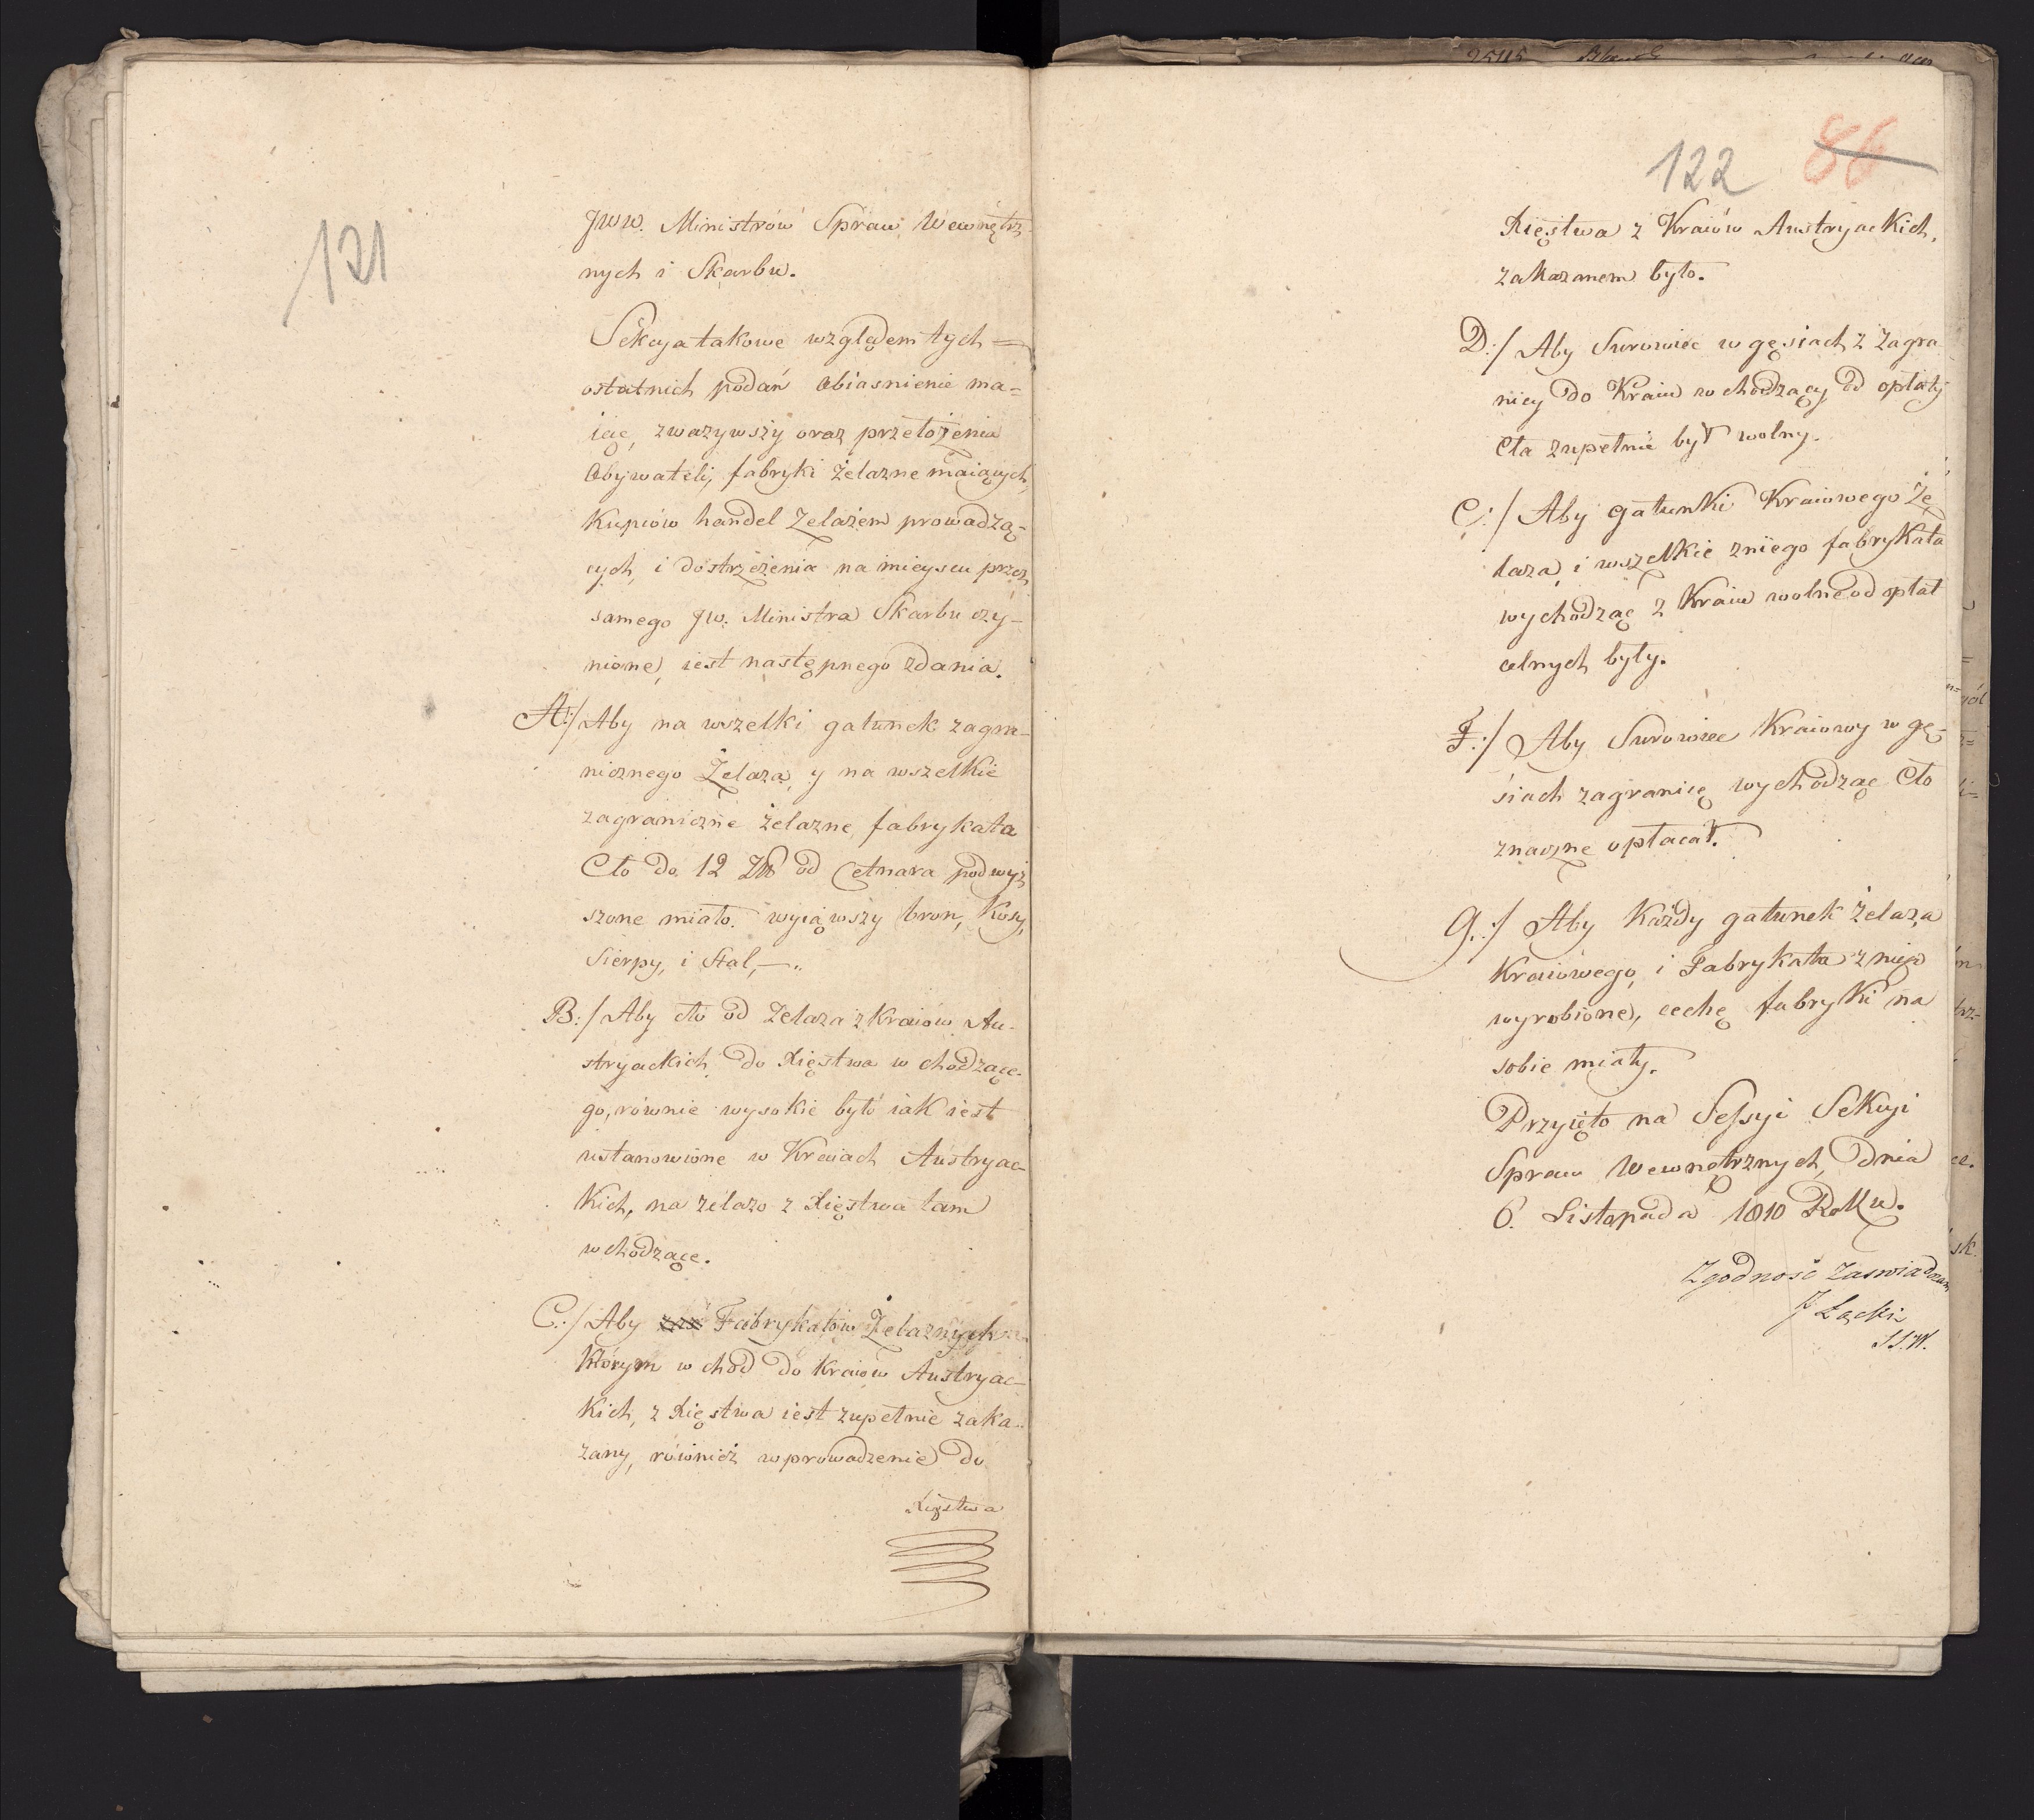 121
JWW. Ministrów Spraw Wewnętrz-
nych i Skarbu.
Sekcya takowe względem tych =
ostatnich podań obiasnienie ma=
iąc, zwazywszy oraz przełożenia
Obywateli, fabryki żelazne maiących,
Kupców handel Zelazem prowadzą-
cych, i dostrzeżenia na mieyscu przez
samego JW. Ministra Skarbu czy-
nione, iest następnego zdania.
A:/ Aby na wszelki gatunek zagra-
nicznego Żelaza, y na wszelkie
zagraniczne żelazne, fabrykata
Cło do 12 Zł od Cetnara podwyż
szone miało. wyiąwszy bron, Kosy,
Sierpy, i Stal, —„
B:/ Aby cło od Zelaza z Kraiów Au-
stryackich do Xięstwa wchodzące-
go, równie wysokie było iak iest
ustanowione w Kraiach Austryac-
kich, na żelazo z Xięstwa tam
wchodzące.
C:/ Aby Fabrykatów Żelaznych
którym wchod do Kraiów Austryac-
kich, z Xięstwa iest zupełnie zaka-
zany, również wprowadzenie do
Xięstwa
122 86
Xięstwa z Kraiów Austryackich,
zakazanem było.
D:/ Aby Surowiec w gęsiach z Zagra
nicy do Kraiu wchodzący od opłaty
Cła zupełnie był wolny.
E:/ Aby gatunki Kraiowego Że
laza, i wszelkie zniego fabrykata
wychodząc z Kraiu wolne od opłat
celnych były.
F:/ Aby Surowiec Kraiowy w gę-
siach zagranicę wychodząc Cło
znaczne opłacał.
G:/ Aby Każdy gatunek żelaza
Kraiowego, i Fabrykata z niego
wyrobione, cechę fabryki na
sobie miały.
Przyięto na Sessyi Sekcyi
Spraw Wewnętrznych, Dnia
6. Listopada 1810 Roku.
Zgodność Zaswiadczam
J Łącki
S.S.W.